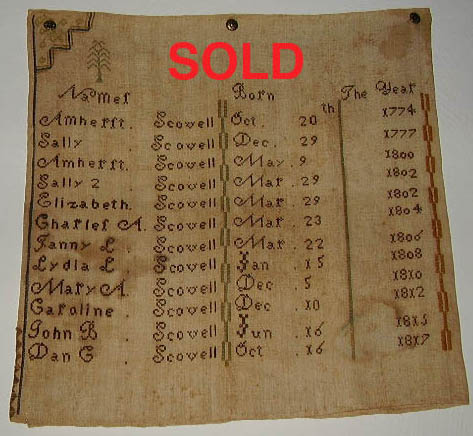 SOLD
Nameſ Born The Year
Amherſt. Scovell Oct. 20th 1774
Sally Scovell Dec. 29 1777
Amherſt. Scovell May. 9 1800
Sally 2 Scovell Mar. 29 1802
Elizabeth. Scovell Mar. 29 1802
Charleſ A. Scovell Mar. 23 1804
Fanny L. Scovell Mar. 22 1806
Lydia L. Scovell Jan. 15 1808
Mary A. Scovell Dec. 5 1810
Caroline. Scovell Dec. 10 1812
John B. Scovell Jun. 16 1815
Dan C. Scovell Oct. 16 1817